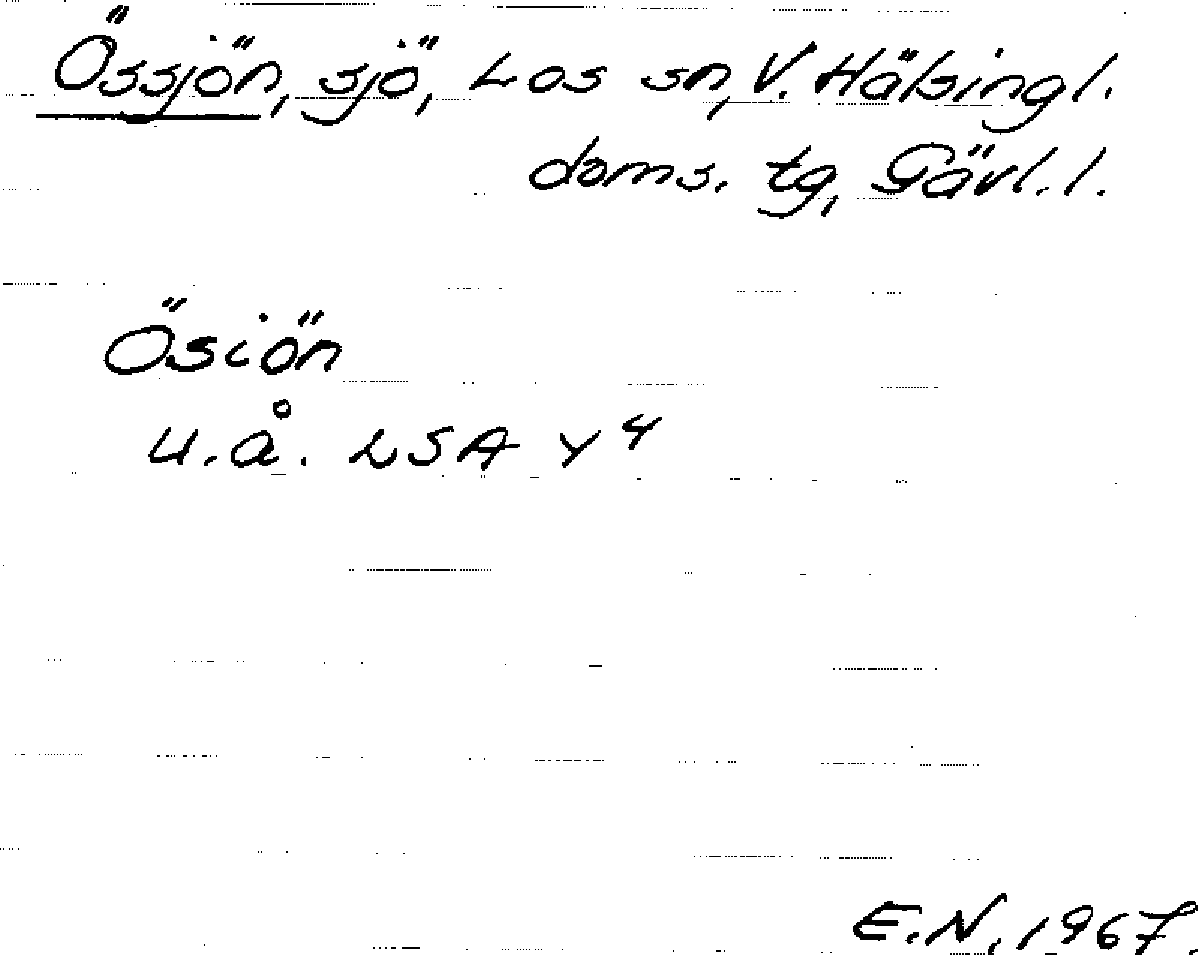 Össjön, sjö, Los sn, V. Hälsingl.
doms. tg, Gävl. l.
Ösiön
u.å. LSA Y 4
E.N. 1967.